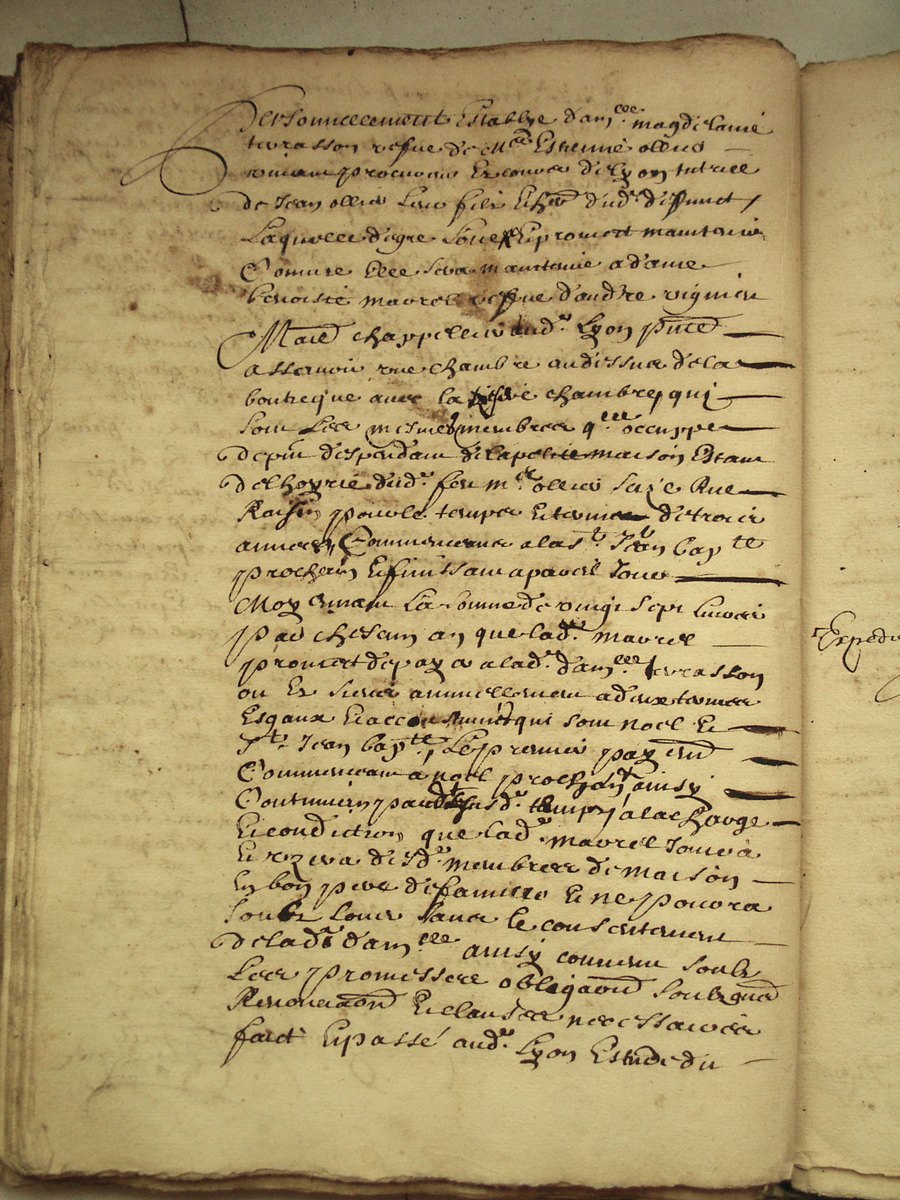 Personnellement Establye dam.lle magdelaine
terrasson vefue de M.re Estienne ollier
vivant procureur Es cours de Lyon tutrice
de Jean ollier leur filz Et her. dud. deffunct /
Laquelle de gre loue Et promect maintenir
Comme Elle sera maintenie a dame
benoiste maurel veffue d'andre vignieu
M.ad chappellier aud. Lyon p.nte
assavoir une chambre au dessus de la
bouticque avec la chambre qui
sont Les mesmes membres q.lle occuppe
depn.t despendam de la petite maison Estant
de lhoyrie dud. feu m.e ollier size Rue
Raisin pour le temps Et terme de trois
annees Commenceans a la S.t Jean bap.te
prochain Et finissam a pareil Jour
Moyenam La somme de vingt sept livres
p.ar chesam an que lad. maurel
promect de payer a lad. dam.lle terrasson
ou Es siens annuellemen a deux termes
Esgaux Et acco. qui sont noel Et
S.t Jean bap.te, Le premier payem.t
Commenceam a noel prochain, ainsy
Continuer pand. lesd. temps, a la charge
Et condiction que lad. maurel Jouira
Et uzera desd. membres de maison
En bon pere de famille Et ne pourra
soubz louer sans le consentemen
de lad. dam.lle ainsy conven soubz
Les promesses obliga.ons soubz.ons
Renoncia.ons Et clauses necessaires
faict Et passé aud. Lyon Estude du
Expedié